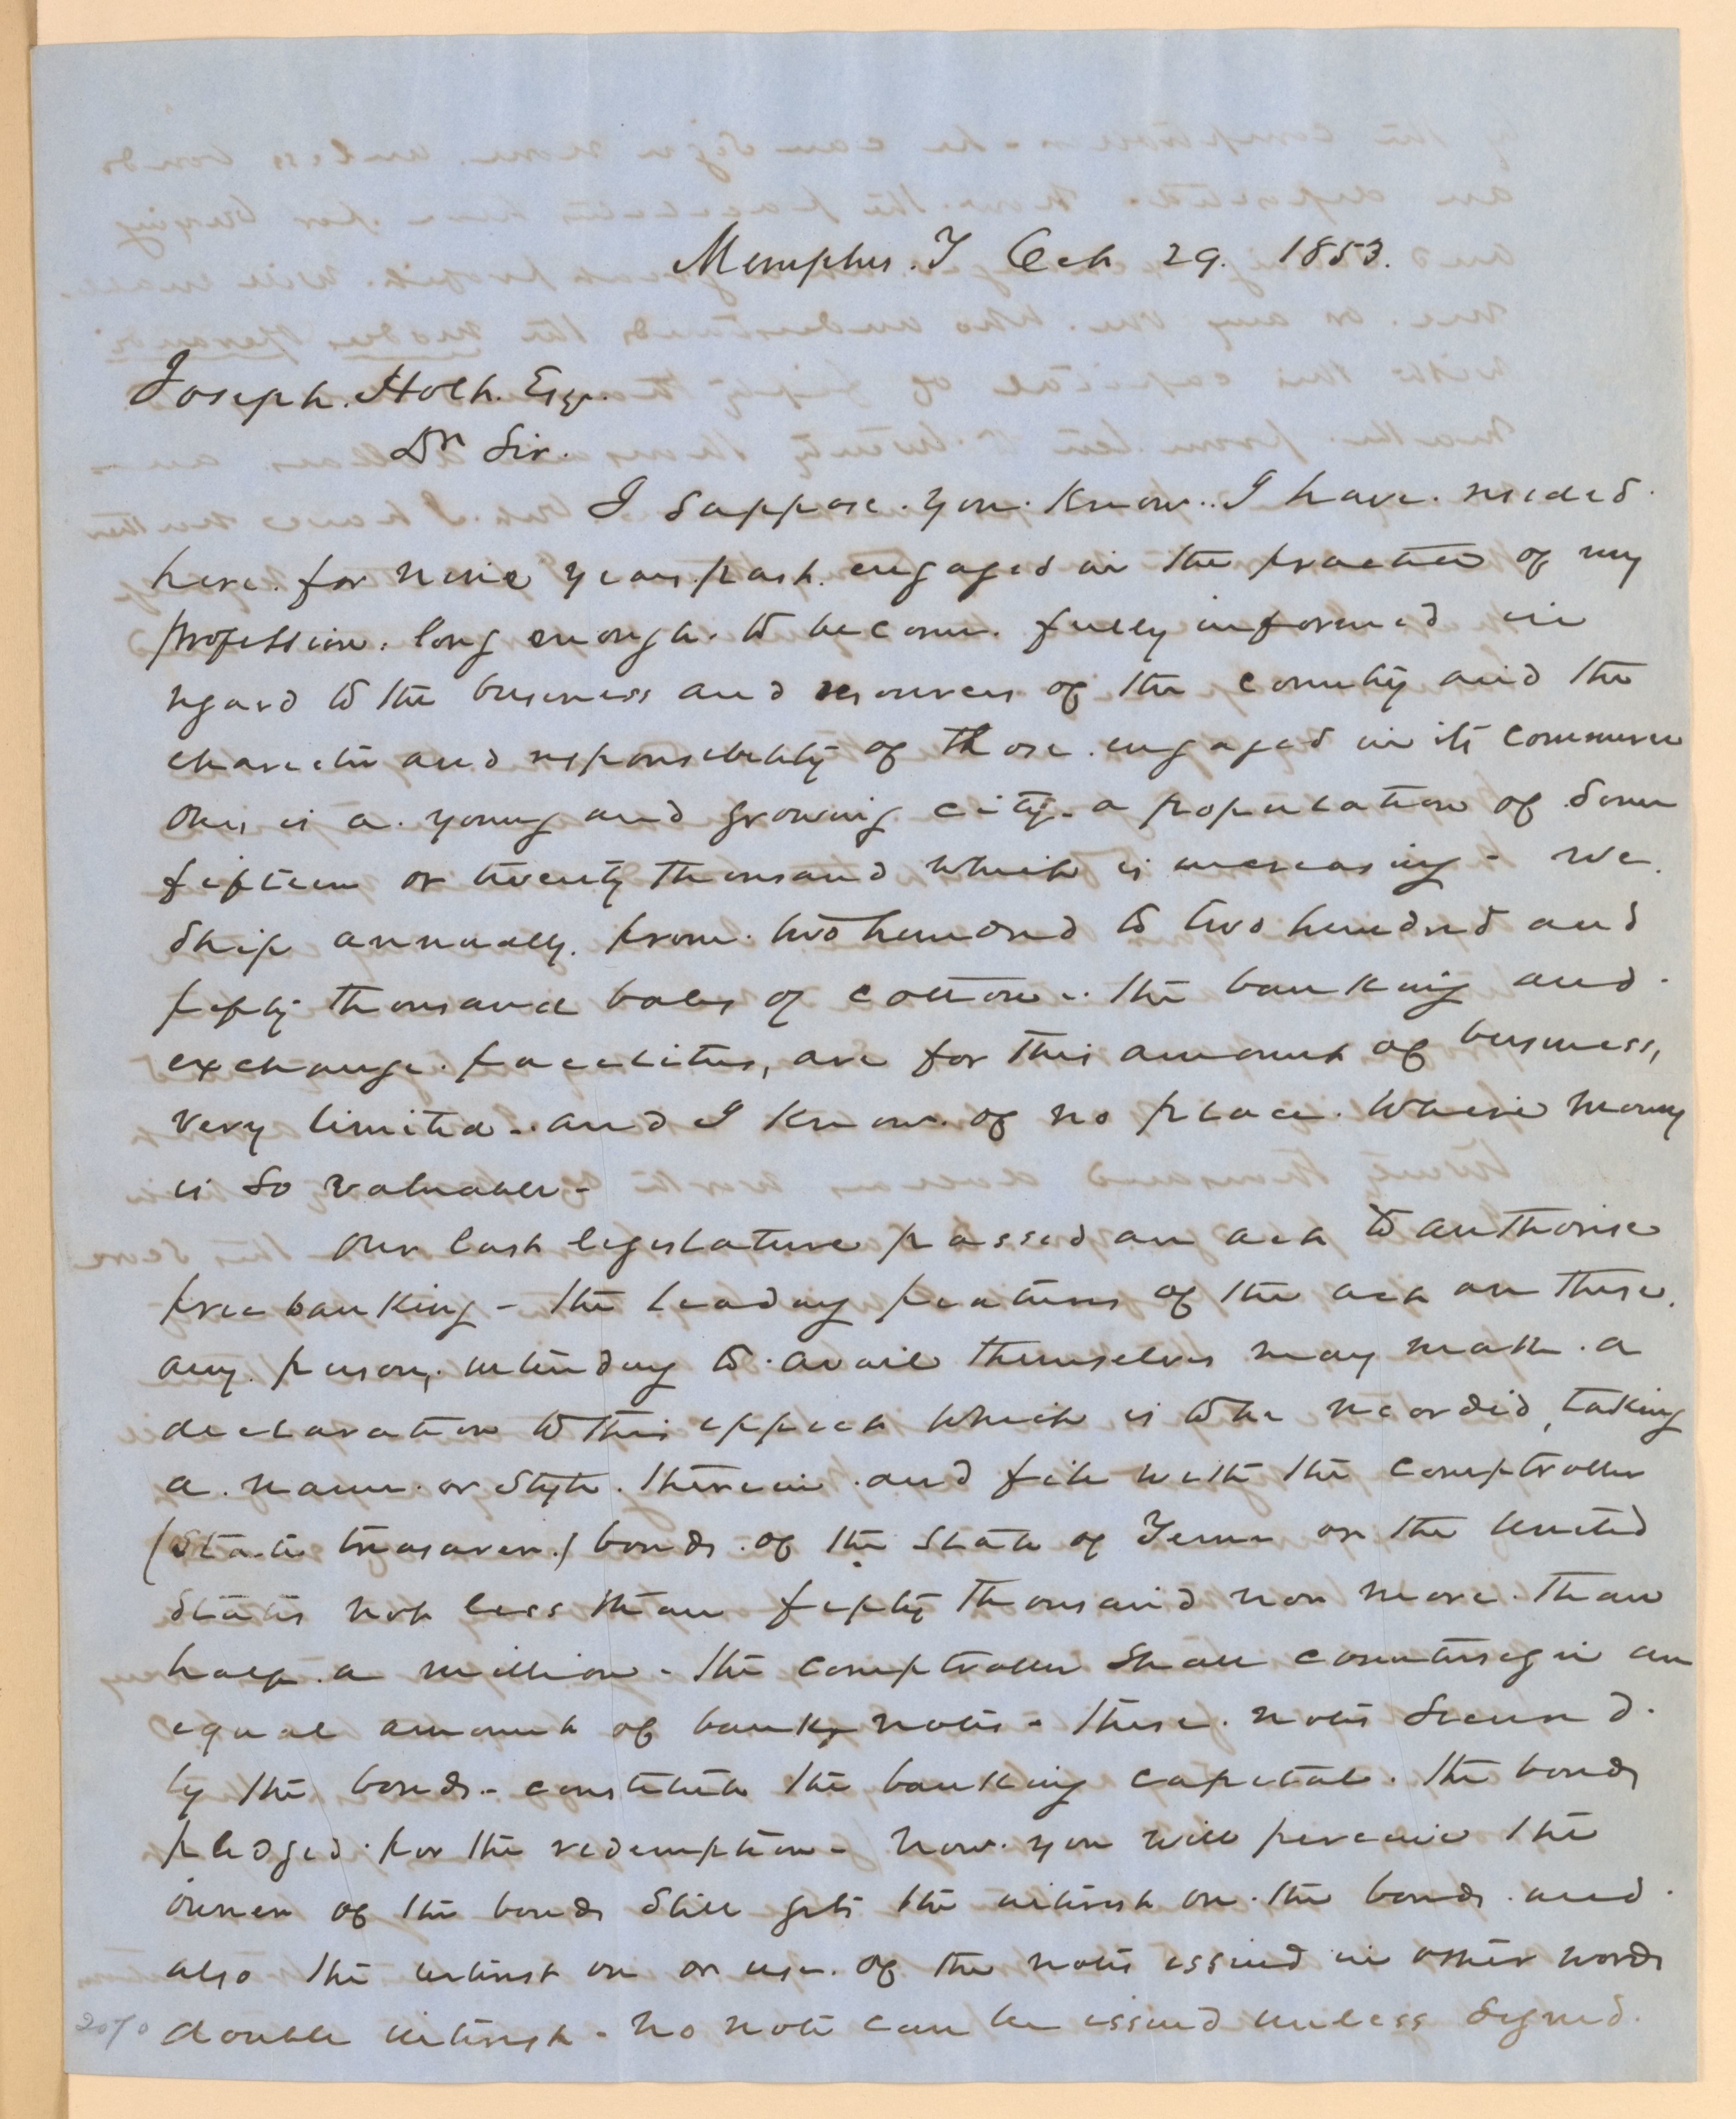 Memphis. T Oct 29. 1853.
Joseph. Holt. Esqr.
Dr Sir.
I suppose. you. know.. I have. resided.
here. for nine years. past. engaged in the practice of my
profession. long enough. to become. fully informed in
regard to the business and resources of the country and the
character and responsibility of those. engaged in its commerce
Ours is a. young and growing city - a population of some
fifteen or twenty thousand which is increasing - We.
ship annually. from. two hundred to two hundred and
fifty thousand bales of cotton -. the banking and.
exchange. facilities, are for this amount of business,
very limited -. and I know. of no place. where money
is so valuable -
Our last legislature passed an act to authorise
free banking - the leading features of the act are these.
any. persons, intending to. avail themselves may make. a
declaration to this effect which is to be recorded, taking
a. name. or style. therein. and file with the comptroller
(state treasurer.) bonds. of the State of Tenn or the United
States not less than fifty thousand nor more. than
half. a million - the comptroller shall countersign an
equal amount of bank notes - these. notes secured.
by the bonds - constitute the banking capital. the bonds
pledged. for the redemption - Now. you will perceive the
owner of the bonds still gets the interest on. the bonds. and.
also the interest on or use. of the notes issued in other words
double interest - No note can be issued unless signed.
2070